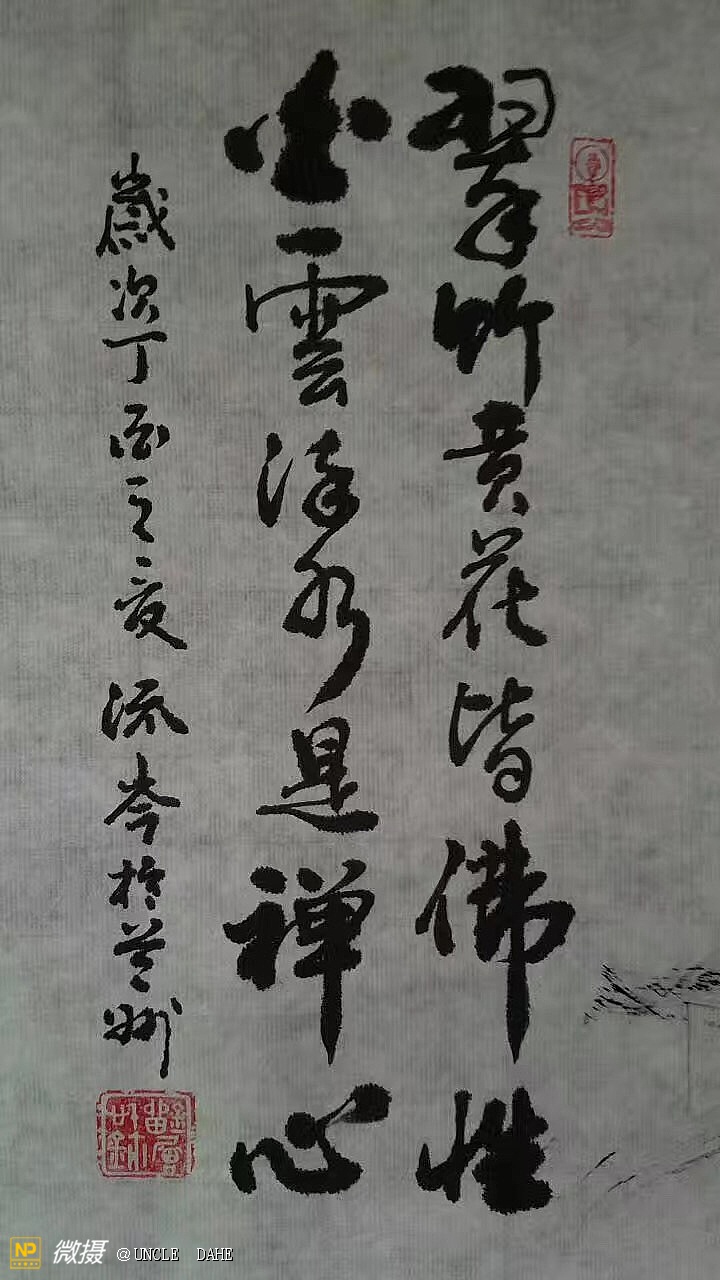 翠竹黄花皆佛性
白雲流水是禅心
歲次丁酉之夏流岑於兰州
NP 微摄 @UNCLE DAHE